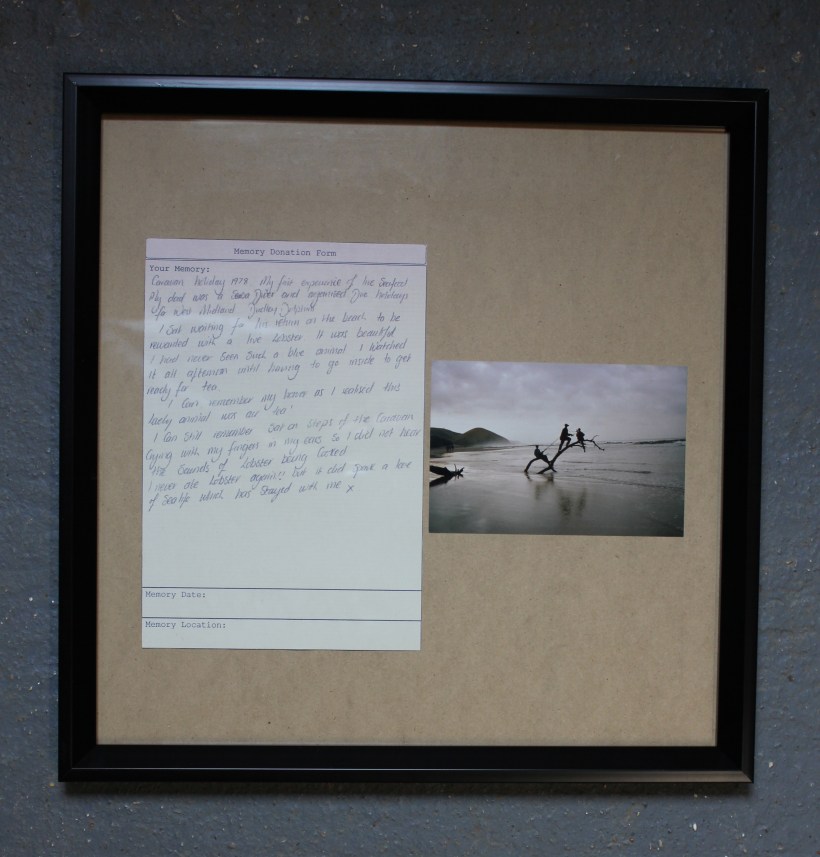 Memory Donation Form
Your Memory:
Caravan holiday 1978. My first experience of live Seafood
My dad was a Scuba Diver and organised Dive holidays
for West Midland, Dudley Dolphins
I Sat waiting for his return on the beach to be
rewarded with a live Lobster. It was beautiful
I had never seen such a blue animal. I watched
it all afternoon until having to go inside to get
ready for tea.
I Can remember my horror as I realised this
lovely animal was our tea'
I Can still remember Sat on steps of the Caravan
Crying with my fingers in my ears So I did not hear
the Sounds of Lobster being Cooked
I never ate Lobster again!! but it did spark a love
of Sealife which has stayed with me x
Memory Date:
Memory Location: